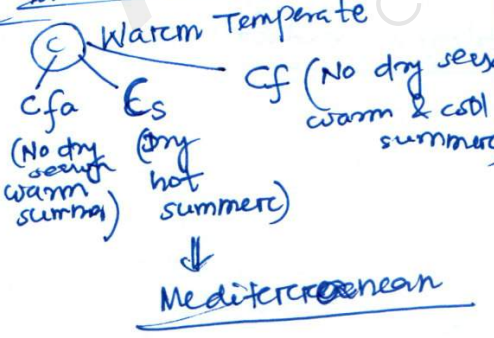 C Warm Temperate
Cfa
(No dry
season
warm
summer)
Cs
(Dry
hot
summer)
Cf (No dry seas
warm & cool
summer
⇓
Mediterranean